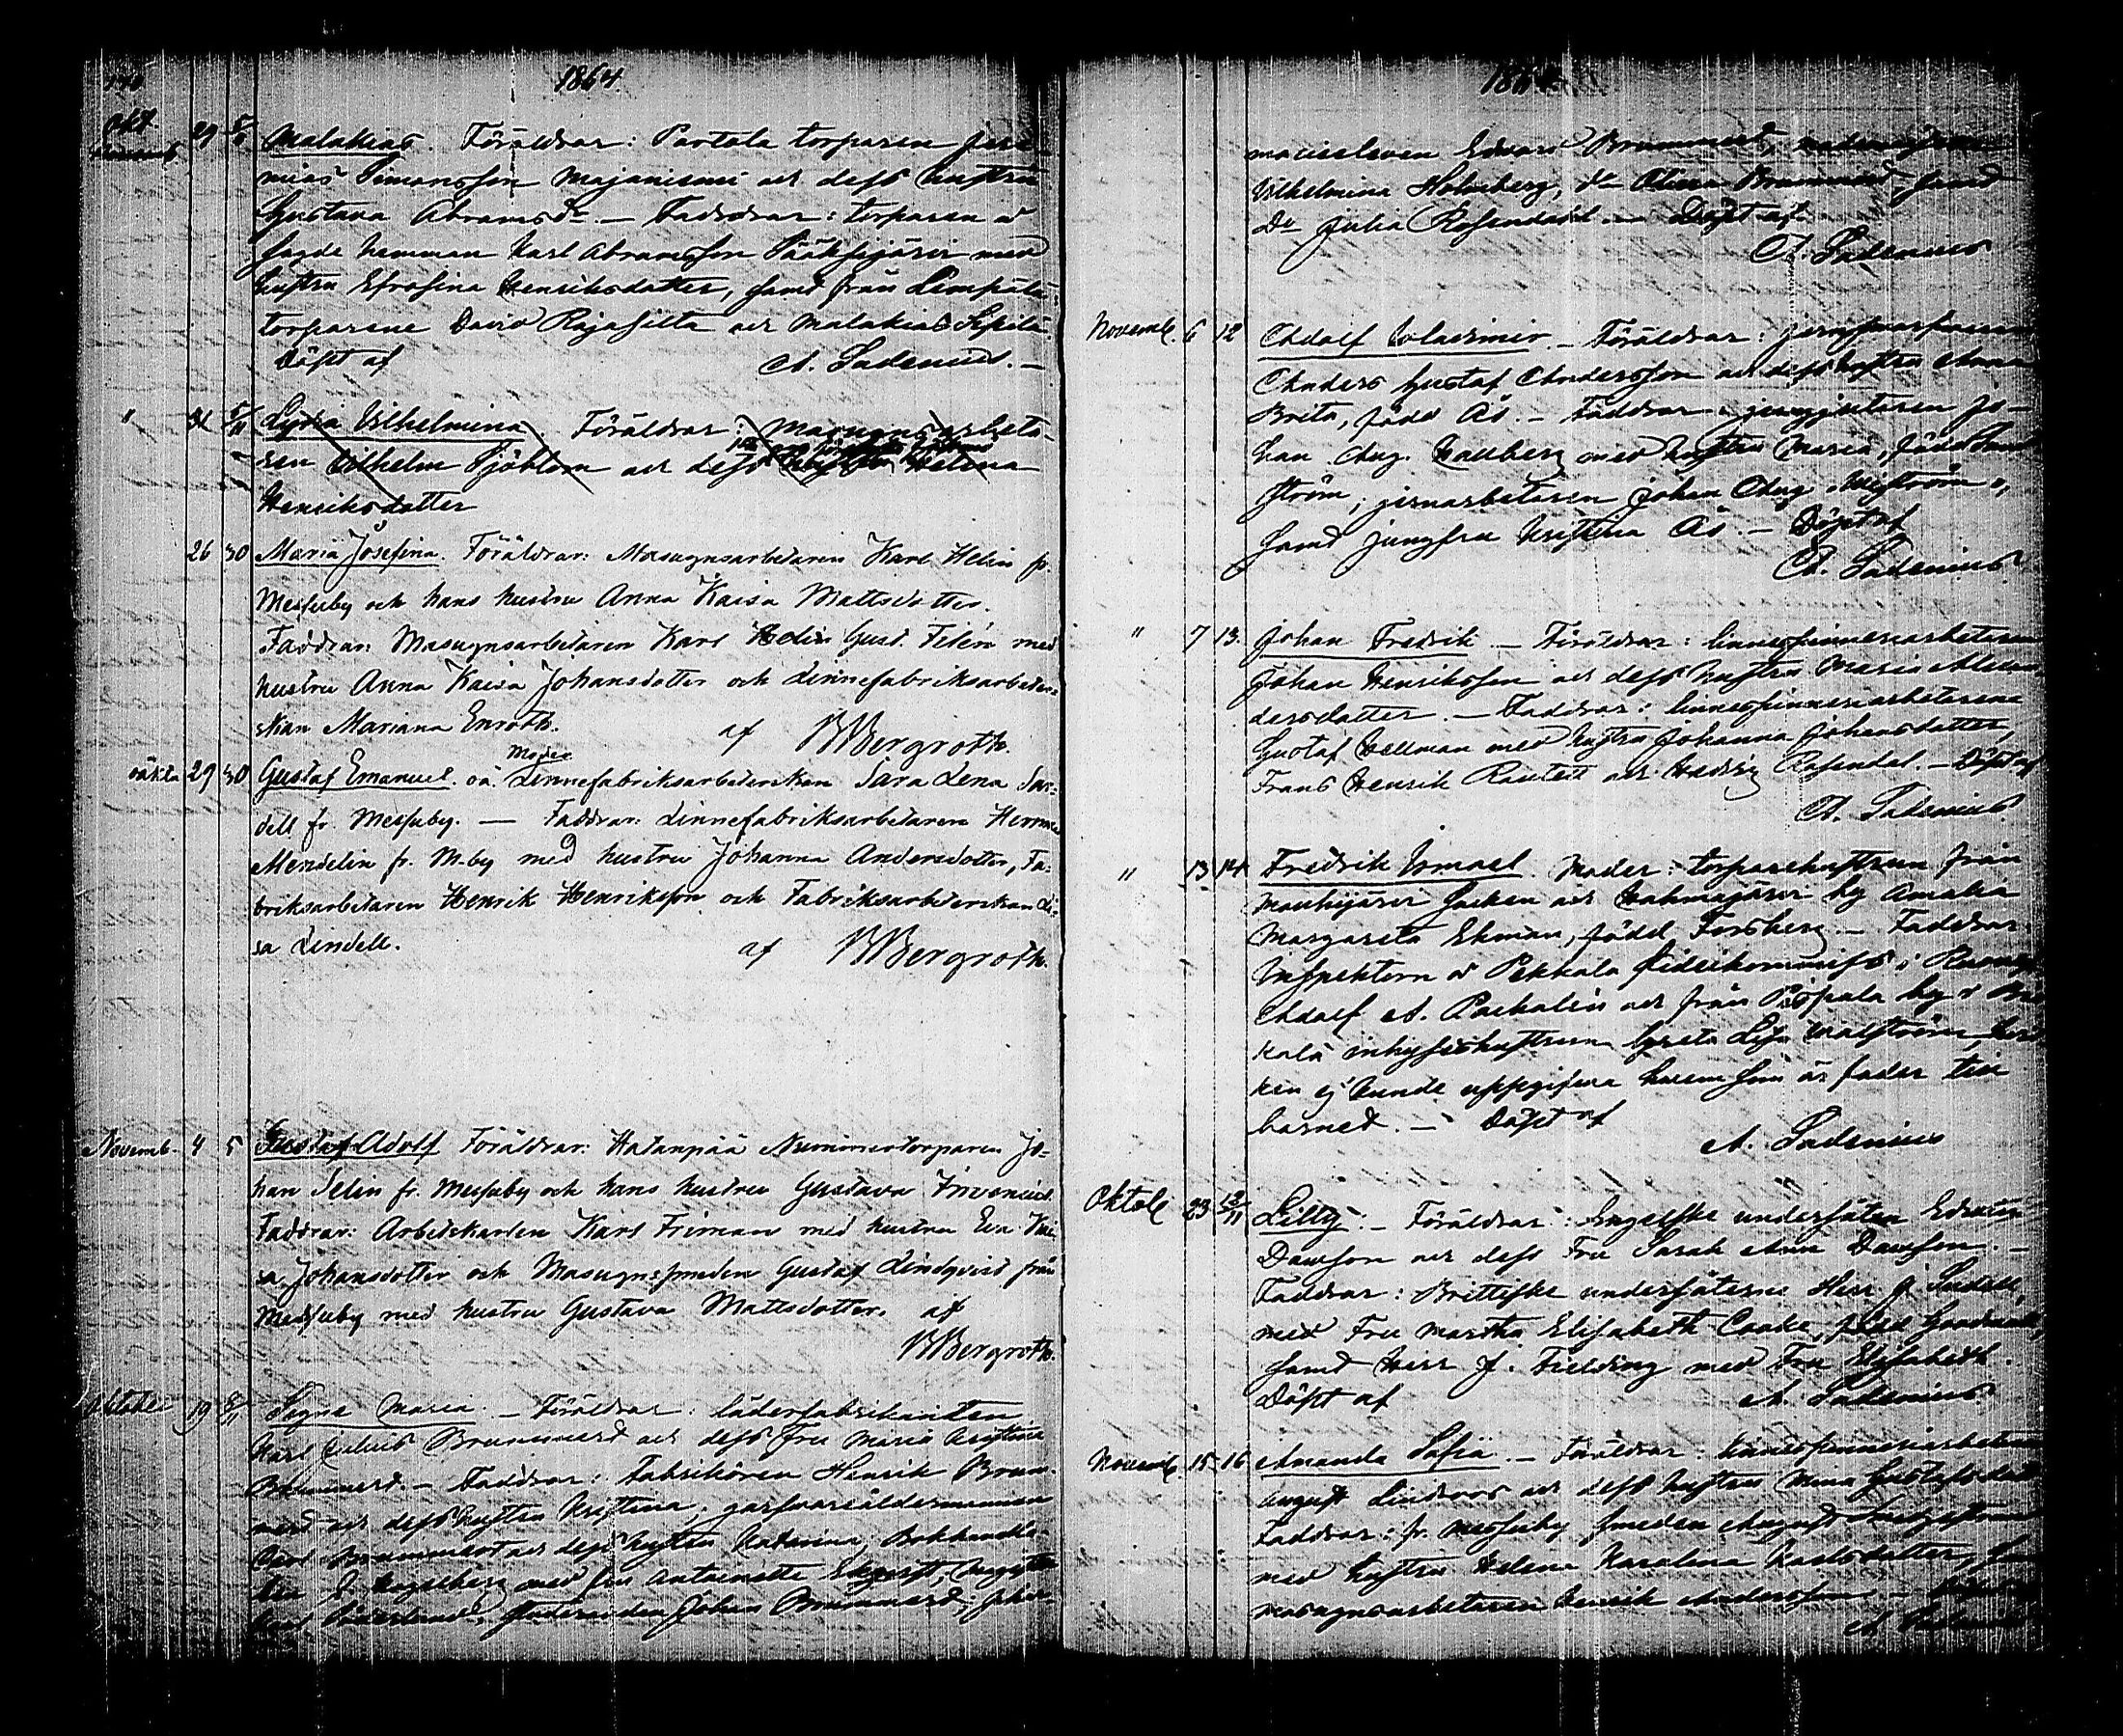 1864.
Okt. 29 5/11 Malakias. Föräldrar: Partola torparen Jere-
mias Simonsson Majaniemi och dess hustru
Gustava Abramsdr. — Faddrar: torparen å
samma hemman Karl Abramsson Sääksjärvi med
hustru Efrosina Henriksdotter, samt från Lempäälä:
torparene David Rajasilta och Malakias Seppilä.
Döpt af A. Ladenius. —
" 31 5/11 Lydia Vilhelmina Föräldrar: Masugnsarbeta-
ren Vilhelm Sjöblom och dess hustru Helena
Henriksdotter
26 30 Maria Josefina. Föräldrar: Masugnsarbetaren Karl Helin fr.
Messuby och hans hustru Anna Kaisa Mattsdotter.
Faddrar: Masugnsarbetaren Karl Gust. Filén med
hustru Anna Kaisa Johansdotter och Linnefabriksarbeter-
skan Mariana Enroth. af BBergroth.
oäkta 29 30 Gustaf Emanuel. oä. Moder Linnefabriksarbeterskan Sara Lena Sar-
dell fr. Messuby. — Faddrar: Linnefabriksarbetaren Herman
Mendelin fr. M-by med hustru Johanna Andersdotter, Fa-
briksarbetaren Henrik Henriksson och Fabriksarbeterskan Li-
sa Lindell. af BBergroth.
Novemb. 4 5 Gustaf Adolf Föräldrar: Hatanpää Numminontorparen Jo-
han Selin fr. Messuby och hans hustru Gustava
Faddrar: Arbetskarlen Karl Friman med hustru Eva Kai-
sa Johansdotter och Masugnssmeden Gustaf Lindqvist från
Messuby med hustru Gustava Mattsdotter. af
BBergroth.
Oktobr 19 6/11 Signe Maria. — Föräldrar: läderfabrikanten
Karl Julius Brummerd och dess Fru Maria Kristina
Brummerd. — Faddrar: Fabrikören Henrik Brum-
merd och dess hustru Kristina, garfvareåldermannen
Carl Brummerd och dess hustru Katarina, Bokhandla-
ren J. Hagelberg med fru Antoinette
studeranden Johan Brummerd,
1864.
Edvard Brummerd,
Vilhelmina Holmberg, d:o Brummerd, samt
D:o Julia Rosendahl — Döpt af
A. Ladenius
Novemb. 6 12 Adolf Wladimir — Föräldrar:
Anders Gustaf Andersson och dess hustru Anna
Brita, född Ås. — Faddrar: jerngjutaren Jo-
han Aug. Hallberg med hustru Maria, född
ström, jernarbetaren Johan Aug.
samt jungfru Kristina Ås. — Döpt af
A. Ladenius.
" 7 13. Johan Fredrik — Föräldrar: linnespinneriarbetaren
Johan Henriksson och dess hustru Maria Alexan-
dersdotter. — Faddrar: linnespinneriarbetarena
Gustaf Hellman med hustru Johanna Johansdotter,
Frans Henrik och Hedvig Rosendal. — Döpt af
A. Ladenius.
" 13 14 Fredrik Ismael. Moder: torparehustrun från
socken och by Amalia
Margareta Ekman, född Forsberg — Faddrar:
Inspektorn å Pekkala fideikommiss i Ruovesi
Adolf A. Packalén och från by i Bir-
kala inhyseshustrun Greta Lisa Wallström,
ken ej kunde uppgifva hvem som är fader till
barnet. — Döpt af
A. Ladenius
Oktob 23 12/11 Lilly. — Föräldrar: Engelske undersåten Edwin
Dawson och dess Fru Sarah Ann Dawson. —
Faddrar: Brittiske undersåterne Herr J.
med Fru Martha Elisabeth Cooke, född
samt Herr J. Fielding med Fru Elisabeth.
Döpt af A. Ladenius.
Novemb. 15 16 Amanda Sofia. — Föräldrar: linnespinneriarbetaren
August Lindroos och dess hustru Mina Gustafsdotter
Faddrar: fr. Messuby smeden August
med hustru Helena Karolina Karlsdotter,
masugnsarbetaren Henrik Andersson —
A. Ladenius